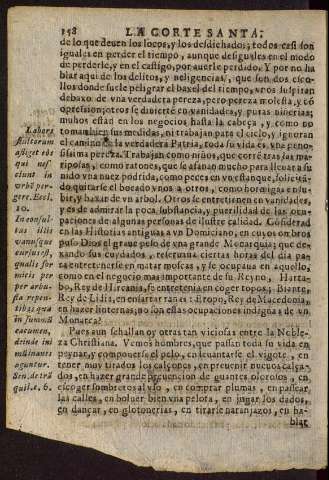 158 LA CORTE SANTA.
de lo que deuen los locos, y los desdichados; todos casi son
iguales en perder el tiempo, aunque desiguales en el modo
de perderle, y en el castigo, por auerle perdido. Y por no ha
blar aqui de los delitos, y negligencias, que son dos esco-
llos donde suele peligrar el baxel del tiempo, vnos suspiran
debaxo de vna verdadera pereza, pero pereza molesta, y co
otros se diuierten en vanidades, y puras niñerias;
muchos estan en los negocios hasta la cabeça, y como no
toman bien sus medidas, ni trabajan para el cielo, y ignoran
el camino de la verdadera Patria, toda su vida es vna peno-
sissima pereza. Trabajan como niños, que corre tras las mari-
posas, como ratones, que se afanan mucho para lleuar a su
nido vna nuez podrida, como pezes en vn estanque,
quitarse el bocado vnos a otros, como hormigas en su-
bir, y baxar de vn arbol. Otros se entretienen en vanidades,
y es de admirar la poca substancia, y puerilidad de las ocu-
paciones de algunas personas de ilustre calidad.
en las Historias antiguas a vn Domiciano, en cuyos ombros
puso Dios el graue peso de vna grande Monarquia; que de-
xando sus cuydados, reseruaua ciertas horas del dia pa
ra entretenerse en matar moscas, y se ocupaua en aquello,
como en el negocio mas importante de su Reyno,
bo, Rey de Hircania, se entretenia en coger topos; Biante,
Rey de Lidia, en ensartar ranas: Eropo, Rey de Macedonia,
en hazer linternas; no son estas ocupaciones indignas de vn
Monarca?
Pues aun se hallan oy otras tan viciosas entre la Noble-
za Christiana. Vemos hombres, que passan toda su vida en
peynar, y componerse el pelo, en leuantarse el vigote, en
tener muy tirados los calçones, en preuenir nueuos calça-
dos, en hazer grande preuencion de guantes olorosos, en
escoger sombreros al vso, en comprar plumas, en passear
las calles, en boluer bien vna pelota, en jugar los dados,
en dançar, en glotonerias, en tirarse naranjazos, en ha-
blar
Labor
stultorum
affliget eos,
qui nes-
ciunt in
vrbē per-
gere. Eccl.
10.
In consul-
tus illis
vanusque
cursus est,
qualis for
micis per
per arbu-
sta repen-
tibus; quæ
in summū
cacumen,
deinde in
imū inanes
aguntur.
Sen. de trā
quil. c. 6.